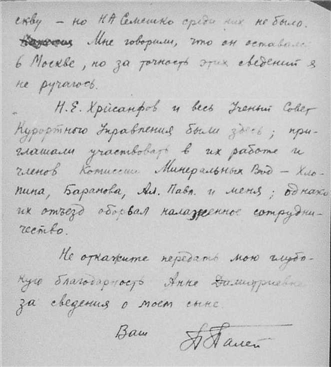 скву — но НА Семешко среди них не было.
Мне говорили, что он оставался
в Москве, но за точность этих сведений я
не ручаюсь.
Н. Е. Хрисанфов и весь Ученый Совет
Курортного Управления были здесь; при-
глашали участвовать в их работе и
членов Комиссии Минеральных Вод — Хло-
пина, Баранова, Ал. Павл. и меня; однако
их отъезд оборвал налаженное сотрудни-
чество.
Не откажите передать мою глубо-
кую благодарность Анне Димитриевне
за сведения о моем сыне
Ваш ППалей